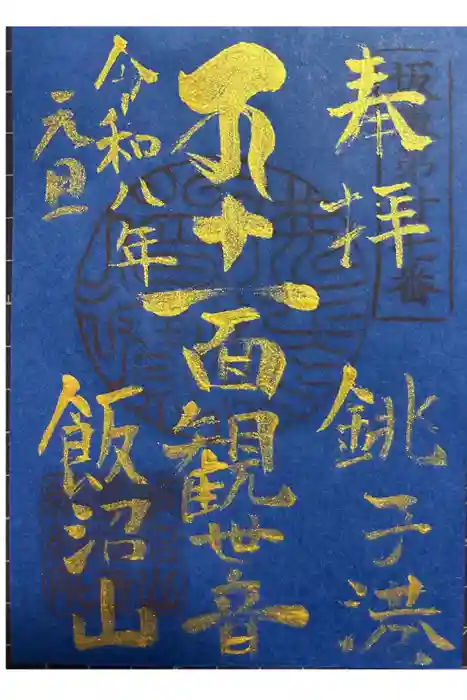 坂東第廿七番
奉拝 銚子港
十一面観世音
令和八年
元旦
飯沼山